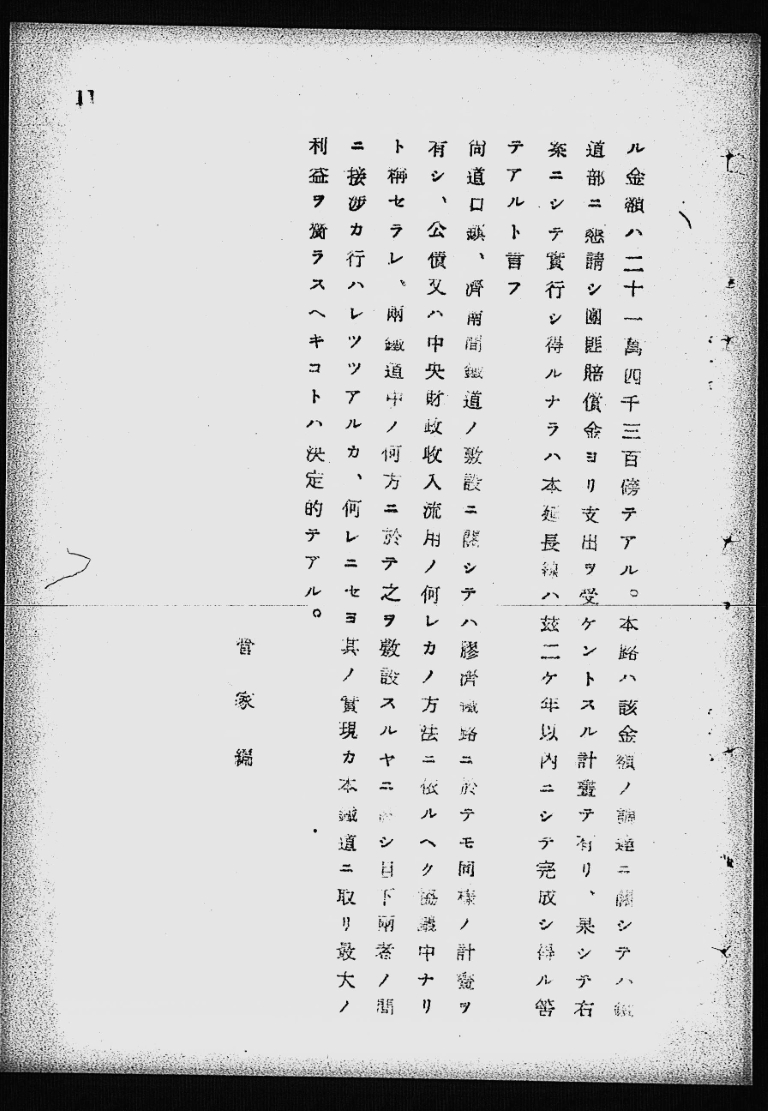 ル金額ハ二十一萬四千三百磅テアル。本路ハ該金額ノ調達ニ關シテハ鐵
道部ニ懇請シ團匪賠償金ヨリ支出ヲ受ケントスル計畫テ有リ、果シテ右
案ニシテ實行シ得ルナラハ本延長線ハ玆二ケ年以内ニシテ完成シ得ル筈
テアルト言フ
尚道口鎭、濟南間鐵道ノ敷設ニ關シテハ膠濟鐵路ニ於テモ同樣ノ計畫ヲ
有シ、公債又ハ中央財政收入流用ノ何レカノ方法ニ依ルヘク協議中ナリ
ト稱セラレ、兩鐵道中ノ何方ニ於テ之ヲ敷設スルヤニシ目下兩者ノ間
ニ接渉カ行ハレツツアルカ、何レニセヨ其ノ實現カ本鐵道ニ取リ最大ノ
利益ヲ齎ラスヘキコトハ決定的テアル。
常家
11